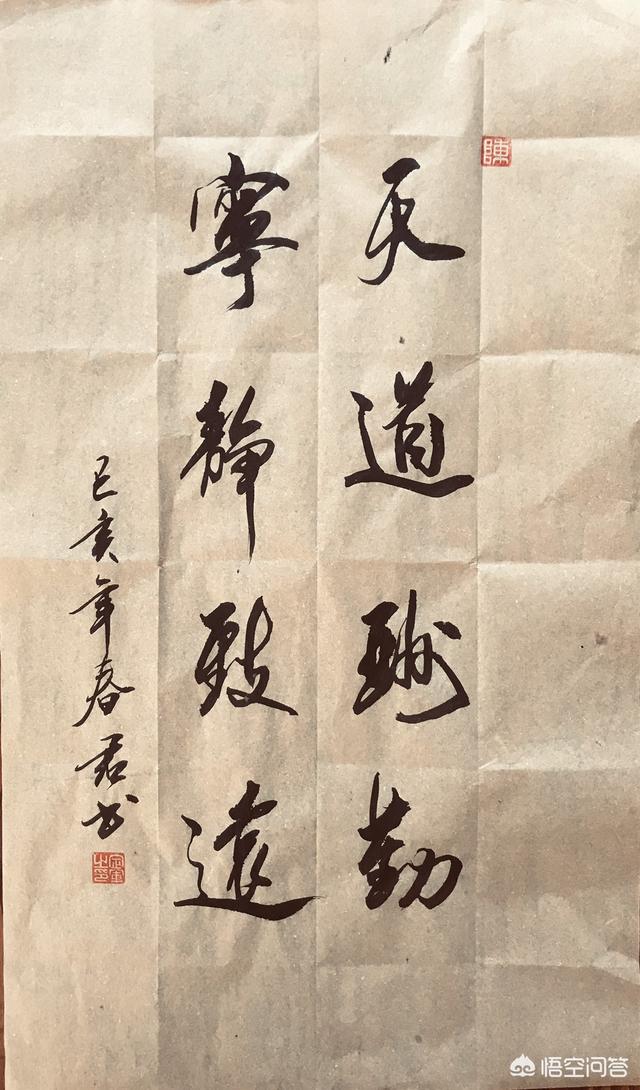 陳
天道酬勤
寧靜致遠
己亥年春君书
悟空问答